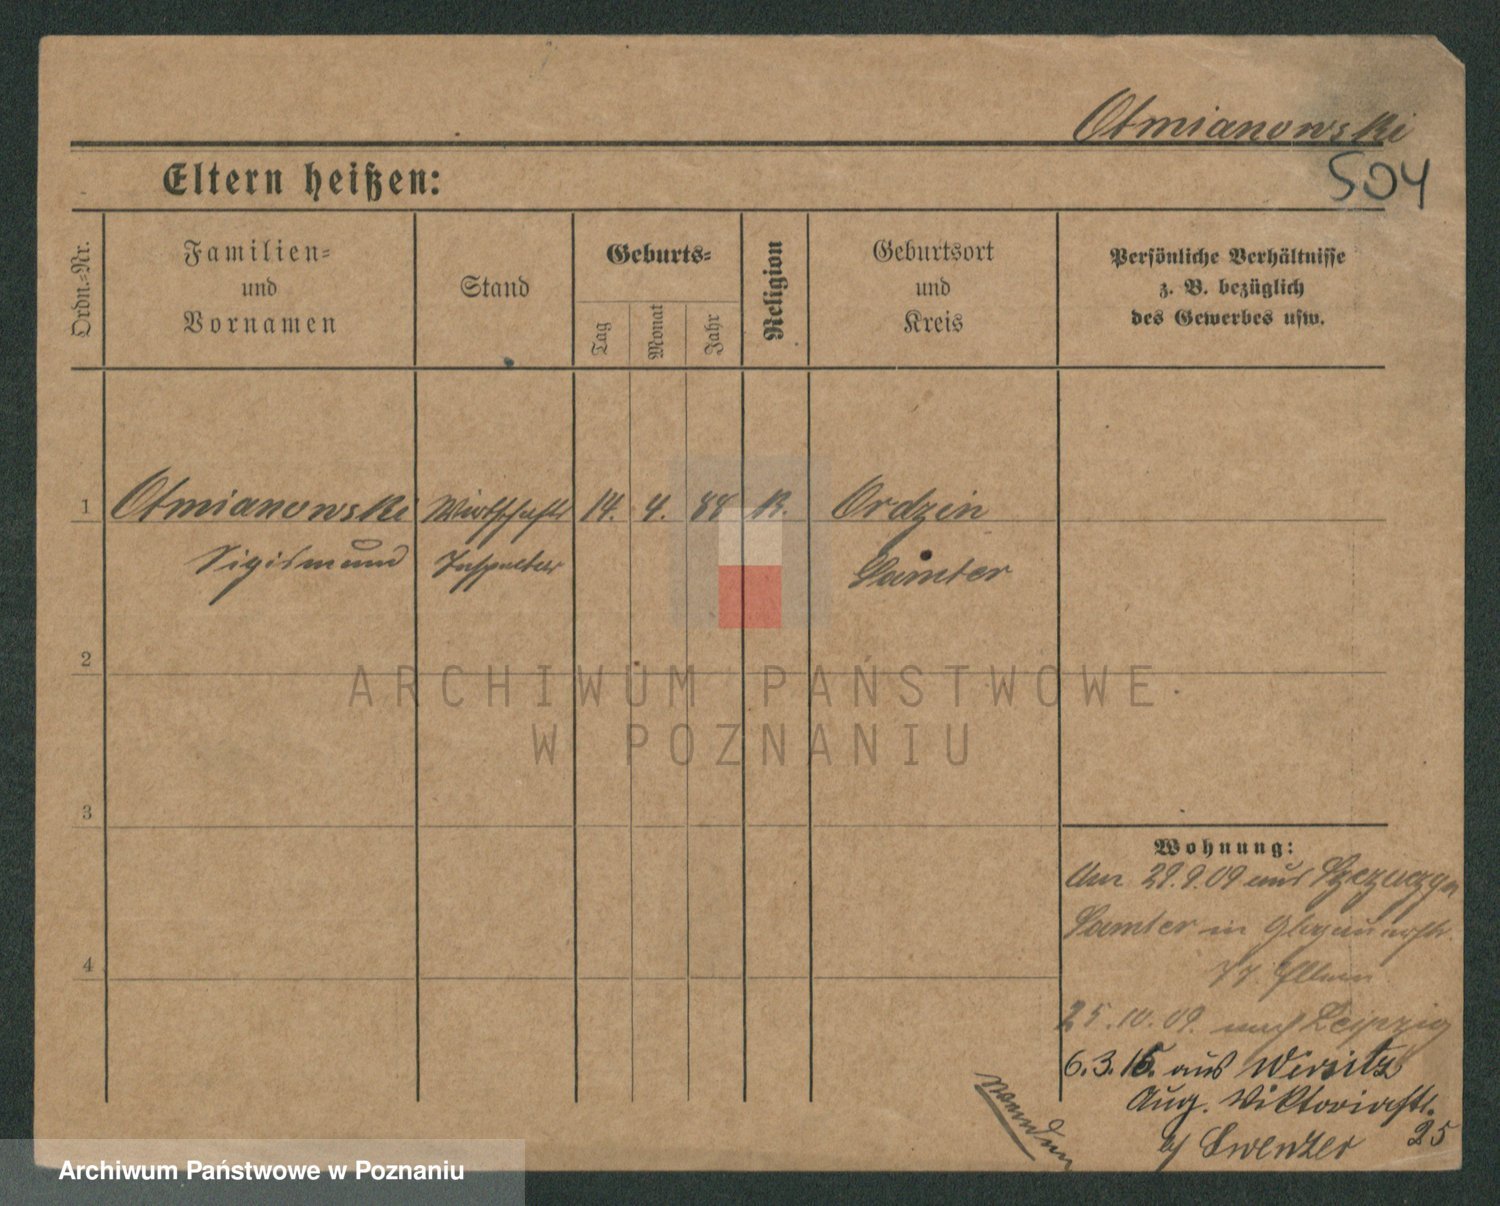 Otmianowski
504
Eltern heißen:
Ordn.-Nr.
Familien-
und
Vornamen
Stand
Geburts-
Tag
Monat
Jahr
Religion
Geburtsort
und
Kreis
Persönliche Verhältnisse
z. B. bezüglich
des Gewerbes usw.
1 Otmianowski Wirtschafts 14. 4. 88 K. Ordzin
Sigismund Inspektor Samter
2
3
4
Wohnung:
Am 29.9.09 aus
Samter in
77. Eltern
25.10.09. nach Leipzig
6.3.15. aus Wirsitz
Aug. Viktoriastr.
25
wenden
ARCHIWUM PAŃSTWOWE
W POZNANIU
Archiwum Państwowe w Poznaniu